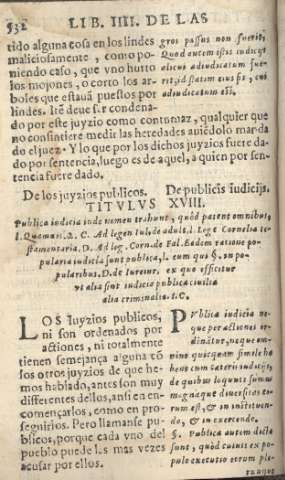 532 LIB. IIII. DE LAS
tido alguna cosa en los lindes
maliciosamente, como po-
niendo caso, que vno hurto
los mojones, o corto los ar-
boles que estauã puestos por
lindes. Itẽ deue sir condena-
do por este juyzio como contumaz, qualquier que
no consintiere medir las heredades auiẽdolo mãda
do el juez. Y lo que por los dichos juyzios fuere da-
do por sentencia, luego es de aquel, a quien por sen-
tencia fuere dado.
gros passus non fuerit,
Quod autem istis iudicijs
alicui adiudicatum fue-
rit, id statim eius fit, cui
adiudicatum est.
De los juyzios publicos. De publicis iudicijs.
TITVLVS XVIII.
Publica iudicia inde nomen trahunt, quòd patent omnibus,
l. C. Ad legem Iul. de adult. l. Lege Cornelia te-
stamentaria. D. Ad leg. Corn. de Fal. Eadem ratione po-
pularia iudicia sunt publica, l. eum qui §. in po-
pularibus. D. de iureiur. ex quo efficitur
vt alia sint iudicia publica ciuilia
alia criminalia. I. C.
LOS Iuyzios publicos,
ni son ordenados por
actiones, ni totalmente
tienen semejança alguna cõ
los otros juyzios de que he-
mos hablado, antes son muy
differentes dellos, ansi en en-
començarlos, como en pro-
seguirlos. Pero llamanse pu-
blicos, porque cada vno del
pueblo puede las mas vezes
acusar por ellos.
PVblica iudicia ne-
que per actiones or-
dinãtur, neque om-
nino quicquam simile ha
bent cum cæteris iudicijs,
de quibus loquuti sumus
magnaque diuersitas eo-
rum est, & in instituen-
do, & in exercendo.
§. Publica autem dicta
sunt, quòd cuiuis ex po-
pulo executio eorum ple-